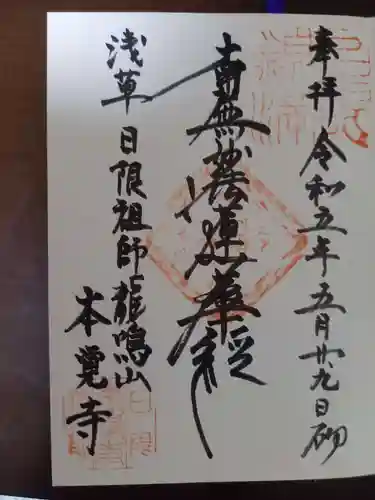 奉拝 令和五年五月廿九日砌
南無妙法蓮華経
浅草 日限祖師 龍鳴山
本覚寺